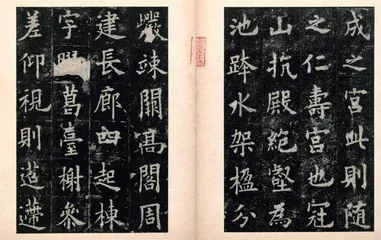 成之宮此則随
之仁壽宮也冠
山抗殿絶壑為
池跨水架楹分
巖竦闕高閣周
建長廊四起棟
宇葛臺榭參
差仰視則迢遰